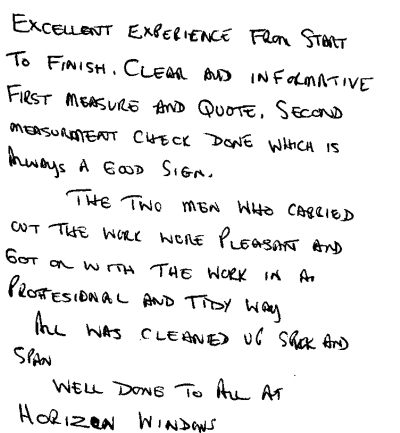 EXCELLENT EXPERIENCE FROM START
TO FINISH. CLEAR AND INFORMATIVE
FIRST MEASURE AND QUOTE. SECOND
MEASURMENT CHECK DONE WHICH IS
ALWAYS A GOOD SIGN.
THE TWO MEN WHO CARRIED
OUT THE WORK WERE PLEASANT AND
GOT ON WITH THE WORK IN A
PROFFESIONAL AND TIDY WAY
ALL WAS CLEANED UP SPICK AND
SPAN
WELL DONE TO ALL AT
HORIZON WINDOWS